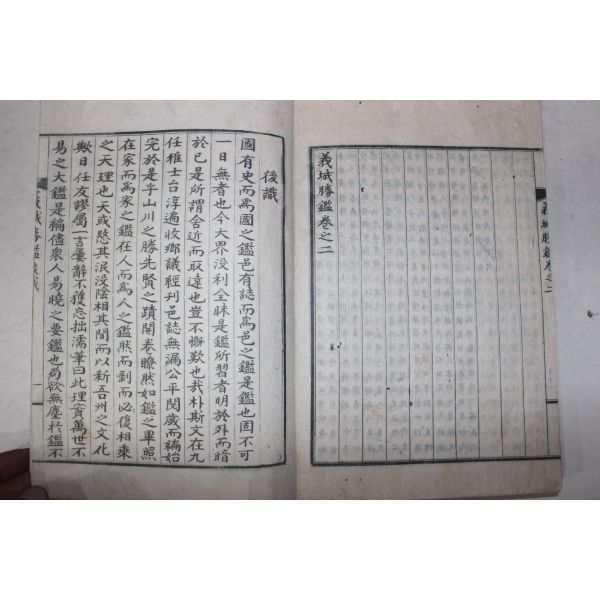 義城勝鑑卷之二
義城勝鑑卷之二
後識
國有史而爲國之鑑邑有誌而爲邑之鑑是鑑也固不可
一日無者也今大界没利全昧是鑑所習者明於外而暗
於已是所謂舍近而取遠也豈不慨歎也哉朴斯文在九
任雅士台淳適收鄉議經刊邑誌無漏公平閱歲而編始
完於是乎山川之勝先賢之蹟開卷瞭然如鑑之畢照
在家而爲家之鑑在人而爲人之鑑然而剝而必復相乘
之天理也天或慜其泯没陰相其間而以新吾州之文化
歟日任友謬屬一言量辭不獲忘拙濡筆曰此理實萬世不
易之大鑑是編儘衆人易曉之要鑑也苟欲無塵於鑑不
義城勝鑑後識 一